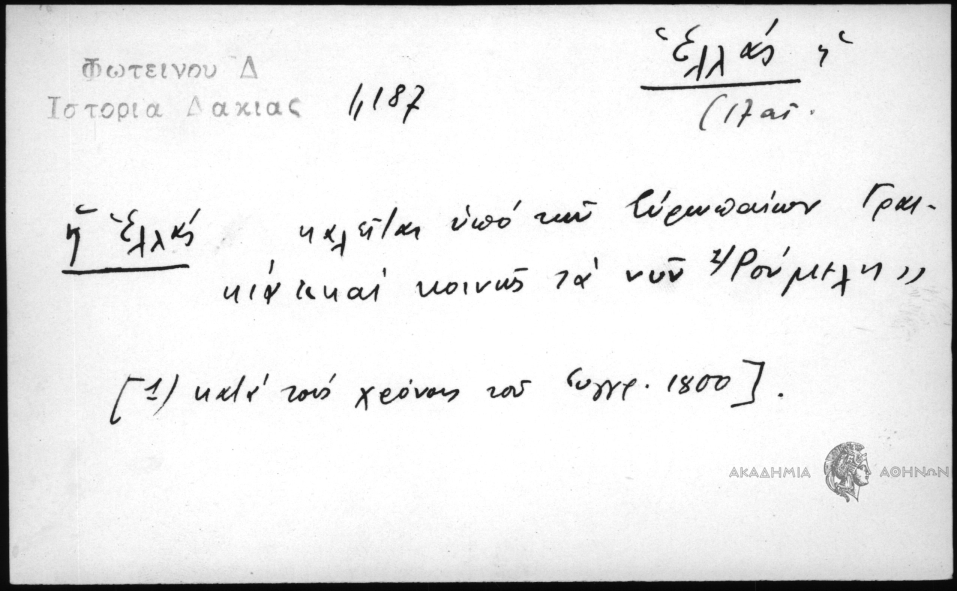 Φωτεινου Δ
Ιστορια Δακιας 1,187
Ἑλλάς ἡ
(17 αἰ.
ἡ Ἑλλάς καλεῖται ὑπό τῶν Εὐρωπαίων Γραι-
κία καί κοινῶς τά νῦν 1) Ρούμελη»
[1) κατά τούς χρόνους τοῦ συγγρ. 1800].
ΑΚΑΔΗΜΙΑ ΑΘΗΝΩΝ